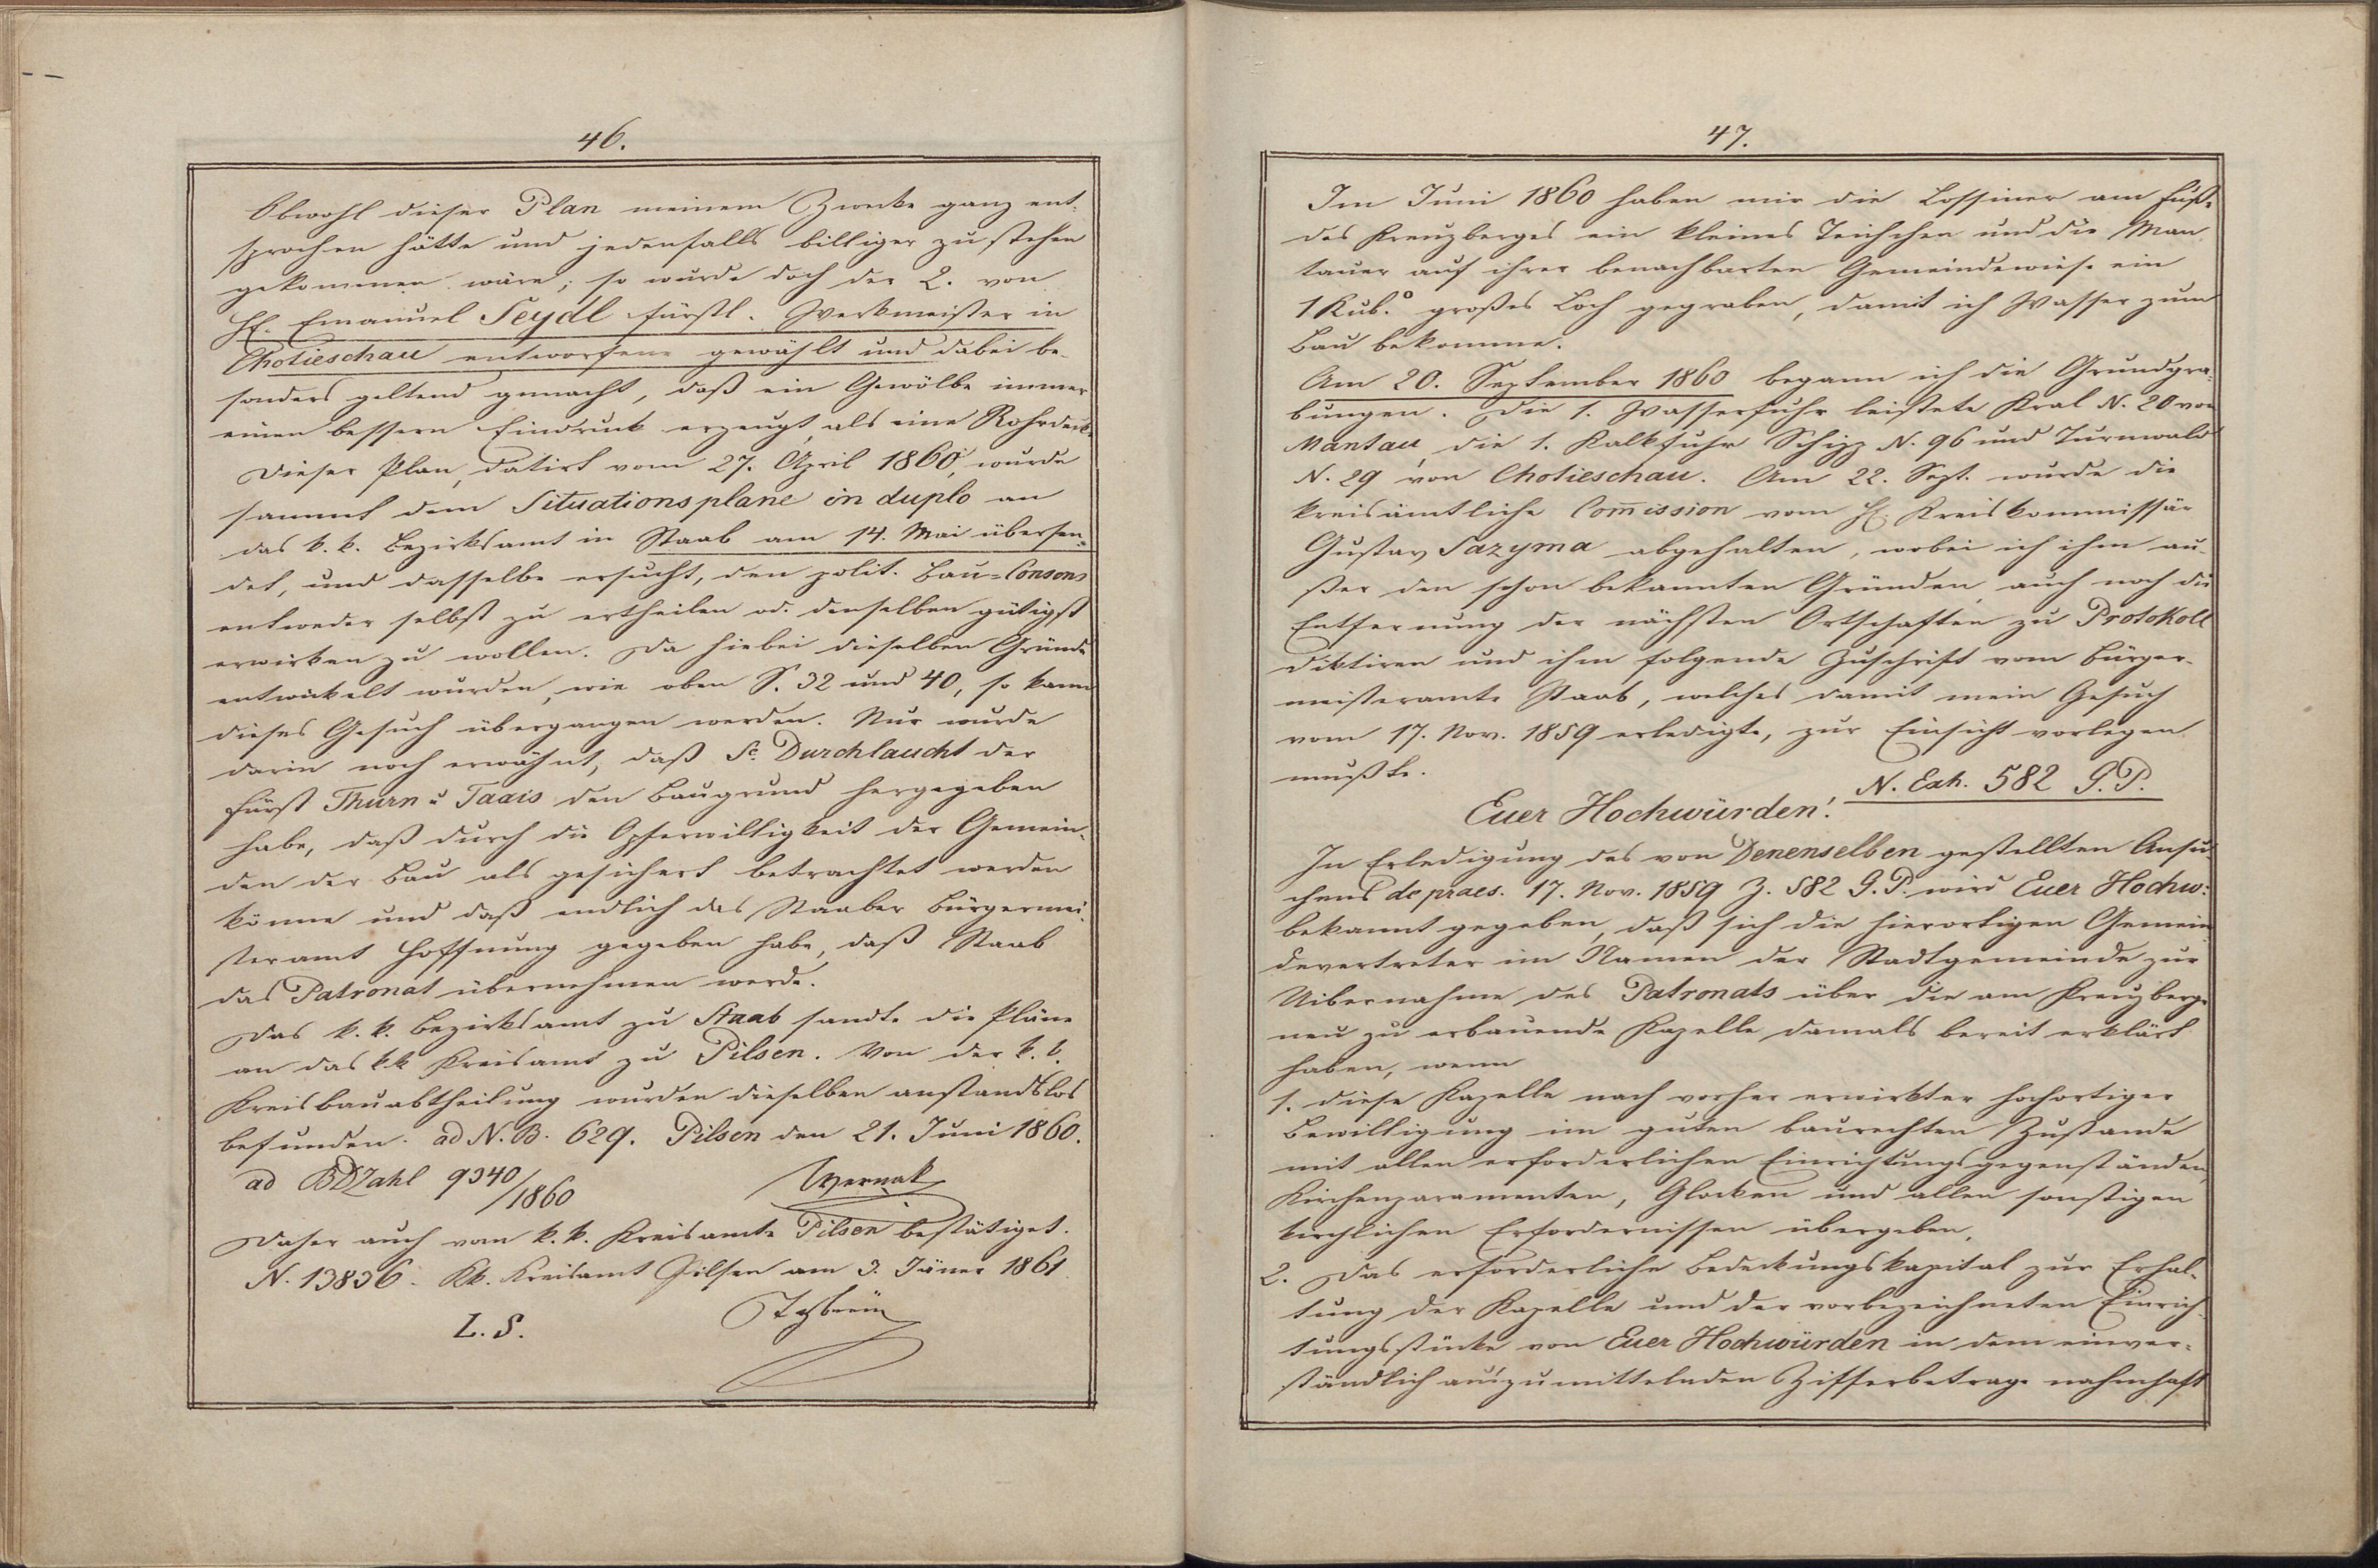 46.
Obwohl dieser Plan meinem Zwecke ganz ent-
sprochen hätte und jedenfalls billiger zu stehen
gekommen wäre, so wurde doch der 2. von
H. Emanuel Seydl fürstl. Werkmeister in
Chotieschau entworfene gewählt und dabei be-
sonders geltend gemacht, daß ein Gewölbe immer
einen bessern Eindruck erzeugt, als eine Rohrdecke
Dieser Plan, datirt vom 27. April 1860, wurde
sammt dem Situationsplane in duplo an
das k. k. Bezirksamt in Staab am 14. Mai übersen-
det, und dasselbe ersucht, den polit. Bau-Consens
entweder selbst zu ertheilen od. denselben gütigst
erwirken zu wollen. Da hiebei dieselben Gründe
entwickelt wurden, wie oben S. 32 und 40, so kann
dieses Gesuch übergangen werden. Nur wurde
darin noch erwähnt, daß Se. Durchlaucht der
Fürst Thurn u Taxis den Baugrund hergegeben
habe, daß durch die Opferwilligkeit der Gemein-
den der Bau als gesichert betrachtet werden
könne und daß endlich das Staaber Bürgermei-
steramt Hoffnung gegeben habe, daß Staab
das Patronat übernehmen werde.
Das k. k. Bezirksamt zu Staab sandte die Pläne
an das kk Kreisamt zu Pilsen. Von der k. k.
Kreisbauabtheilung wurden dieselben anstandslos
befunden. ad N. B. 629. Pilsen den 21. Juni 1860.
ad BDZahl 9340/1860 Wernak
Daher auch vom k. k. Kreisamte Pilsen bestätiget.
N. 13836. Kk. Kreisamt Pilsen am 3. Jäner 1861
L. S.
47.
Im Juni 1860 haben mir die Lossiner am Fuße
des Kreuzberges ein kleines Teichchen und die Man
tauer auf ihrer benachbarten Gemeindewiese ein
1 Kub.° großes Loch gegraben, damit ich Wasser zum
Bau bekomme.
Am 20. September 1860 begann ich die Grundgra-
bungen. Die 1. Wasserfuhr leistete Kral N. 20 von
Mantau, die 1. Kalkfuhr Schipp N. 96 und Turnwald
N. 29 von Chotieschau. Am 22. Sept. wurde die
kreisämtliche Com̅ission vom H. Kreiskommissär
Gustav Sazyma abgehalten, wobei ich ihm au-
ßer den schon bekannten Gründen, auch noch die
Entfernung der nächsten Ortschaften zu Protokoll
diktiren und ihm folgende Zuschrift vom Bürger-
meisteramte Staab, welches damit mein Gesuch
vom 17. Nov. 1859 erledigte, zur Einsicht vorlegen
mußte.
N. Exh. 582 G. P.
Euer Hochwürden!
In Erledigung des von Denenselben gestellten Ansu-
chens de praes. 17. Nov. 1859 Z. 582 G. P. wird Euer Hochw:
bekannt gegeben, daß sich die hierortigen Gemein
devertreter im Namen der Stadtgemeinde zur
Uibernahme des Patronats über die am Kreuzberge
neu zu erbauende Kapelle damals bereit erklärt
haben, wenn
1. diese Kapelle nach vorher erwirkter hochortiger
Bewilligung im guten baurechten Zustande
mit allen erforderlichen Einrichtungsgegenständen,
Kirchenparamenten, Glocken und allen sonstigen
kirchlichen Erfordernissen übergeben,
2. Das erforderliche Bedeckungskapital zur Erhal-
tung der Kapelle und der vorbezeichneten Einrich-
tungsstücke von Euer Hochwürden in dem einver-
ständlich auszumittelnden Zifferbetrage nahmhaft